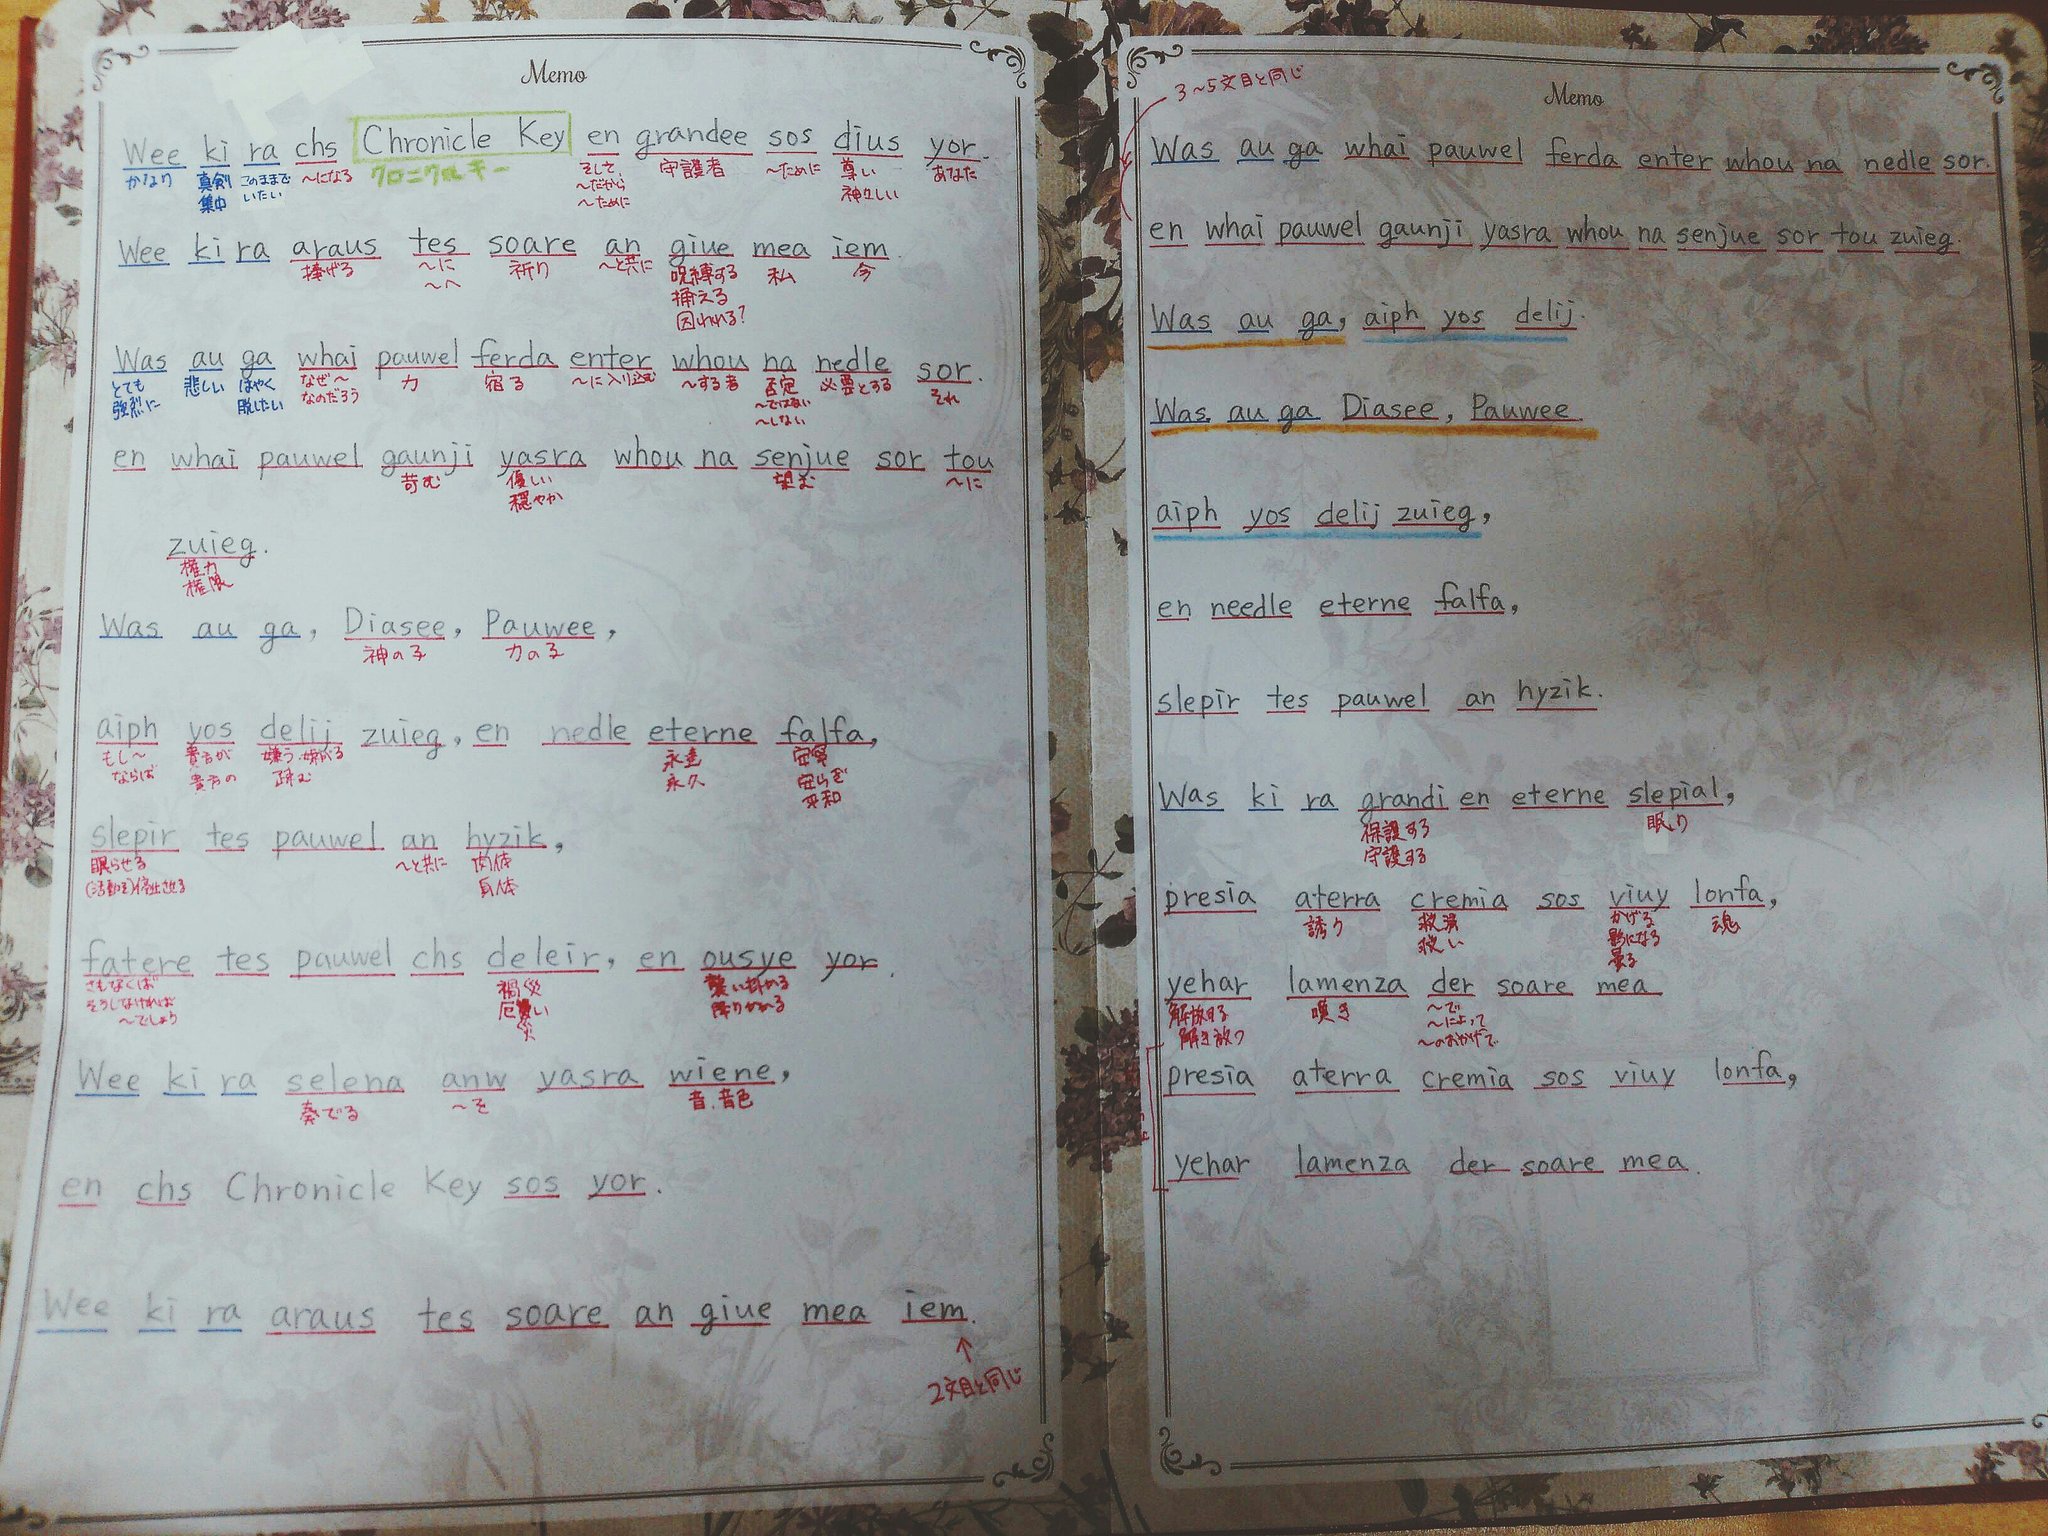 Memo
Wee ki ra chs Chronicle Key en grandee sos dius yor.
かなり 真剣 このままで ~になる クロニクルキー そして、 守護者 ~ために 尊い あなた
集中 いたい ~だから 神々しい
~ために
Wee ki ra araus tes soare an giue mea iem.
捧げる ~に 祈り ~と共に 呪縛する 私 今
~へ 捕える
囚われる?
Was au ga whai pauwel ferda enter whou na nedle sor.
とても 悲しい はやく なぜ~ 力 宿る ~に入り込む ~する者 否定 必要とする それ
強烈に 脱したい なのだろう ~ではない
~しない
en whai pauwel gaunji yasra whou na senjue sor tou
苛む 優しい 望む ~に
穏やか
zuieg.
権力
権限
Was au ga, Diasee, Pauwee,
神の子 力の子
aiph yos delij zuieg, en nedle eterne falfa,
もし~ 貴方が 嫌う 嫌がる 永遠 安寧
ならば 貴方の 疎む 永久 安らぎ
平和
slepir tes pauwel an hyzik,
眠らせる ~と共に 肉体
(活動を)停止させる 身体
fatere tes pauwel chs deleir, en ousye yor.
さもなくば 禍災 襲い掛かる
そうしなければ 厄 降りかかる
~でしょう
Wee ki ra selena anw yasra wiene,
奏でる ~を 音、音色
en chs Chronicle Key sos yor.
Wee ki ra araus tes soare an giue mea iem.
↑
2文目と同じ
Memo
3~5文目と同じ
Was au ga whai pauwel ferda enter whou na nedle sor.
en whai pauwel gaunji yasra whou na senjue sor tou zuieg.
Was au ga, aiph yos delij.
Was au ga Diasee, Pauwee.
aiph yos delij zuieg,
en needle eterne falfa,
slepir tes pauwel an hyzik.
Was ki ra grandi en eterne slepial,
保護する 眠り
守護する
presia aterra cremia sos viuy lonfa,
誘り 救済 かげる 魂
救い 影になる
曇る
yehar lamenza der soare mea
解放する 嘆き ~で
解き放つ ~によって
~のおかげで
presia aterra cremia sos viuy lonfa,
yehar lamenza der soare mea.